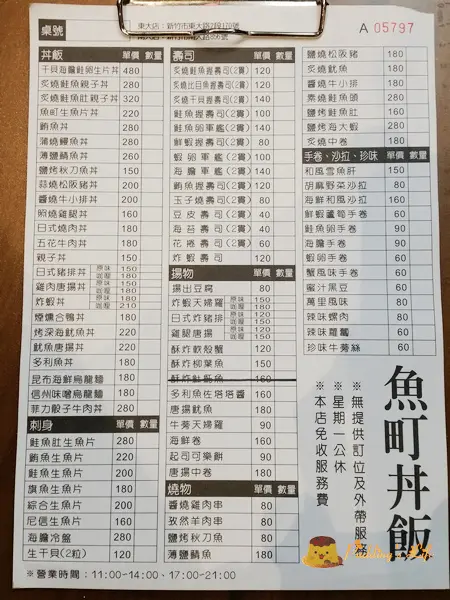 桌號
東大店：新竹市東大路2段170號
A 05797
丼飯 單價 數量
干貝海膽鮭卵生片丼 480
炙燒鮭魚親子丼 280
炙燒鮭魚肚親子丼 320
魚町生魚片丼 220
鮪魚丼 280
蒲燒鰻魚丼 280
薄鹽鯖魚丼 260
鹽烤秋刀魚丼 150
蒜燒松阪豬丼 200
醬燒牛小排丼 200
照燒雞腿丼 160
日式燒肉丼 180
五花牛肉丼 180
親子丼 150
日式豬排丼 原味 150 咖哩 180
雞肉唐揚丼 原味 150 咖哩 180
炸蝦丼 原味 180 咖哩 210
煙燻合鴨丼 180
烤深海魷魚丼 220
魷魚唐揚丼 220
多利魚丼 180
昆布海鮮烏龍麵 180
信州味噌烏龍麵 180
菲力骰子牛肉丼 280
刺身 單價 數量
鮭魚肚生魚片 280
鮪魚生魚片 220
鮭魚生魚片 200
旗魚生魚片 180
綜合生魚片 200
尼信生魚片 160
海膽冷盤 280
生干貝(2粒) 120
壽司 單價 數量
炙燒鮭魚握壽司(2貫) 120
炙燒比目魚握壽司(2貫) 120
炙燒干貝握壽司(2貫) 140
鮭魚握壽司(2貫) 100
鮭魚卵軍艦(2貫) 140
鮮蝦握壽司(2貫) 80
蝦卵軍艦(2貫) 100
海膽軍艦(2貫) 140
鮪魚握壽司(2貫) 120
玉子燒壽司(2貫) 80
豆皮壽司(2貫) 40
海苔壽司(2貫) 40
花捲壽司(2貫) 60
壽司 120
揚物 單價 數量
揚出豆腐 80
炸蝦天婦羅 原味 150 咖哩 150
日式炸豬排 原味 120 咖哩 150
雞腿唐揚 原味 120 咖哩 150
酥炸軟殼蟹 120
酥炸柳葉魚 150
酥炸魟魠魚 160
多利魚佐塔塔醬 160
唐揚魷魚 180
牛蒡天婦羅 90
海鮮卷 160
起司可樂餅 90
唐揚中卷 180
燒物 單價 數量
醬燒雞肉串 80
孜然羊肉串 80
鹽烤秋刀魚 80
薄鹽鯖魚 180
鹽燒松阪豬 180
炙燒魷魚 180
醬燒牛小排 180
素燒鰻魚頭 280
鹽烤鮭魚肚 160
鹽烤海大蝦 280
炙燒中卷 180
手卷、沙拉、珍味 單價 數量
和風雪魚肝 150
胡麻野菜沙拉 80
海鮮和風沙拉 160
鮮蝦蘆筍手卷 60
鮭魚卵手卷 90
海膽手卷 90
蝦卵手卷 60
蟹風味手卷 60
蜜汁黑豆 60
萬里風味 80
辣味螺肉 80
辣味蘿蔔 60
珍味牛蒡絲 60
魚町丼飯
※無提供訂位及外帶服務
※星期一公休
※本店免收服務費
※營業時間：11:00-14:00、17:00-21:00